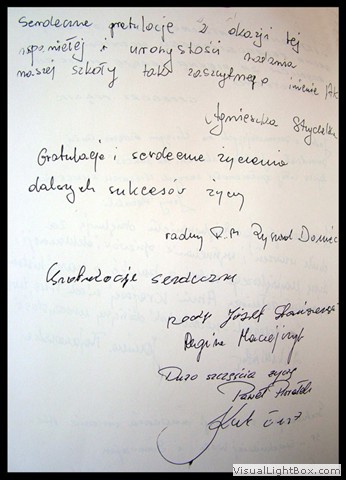 Serdeczne gratulacje z okazji tej
wspaniałej i uroczystości nadania
naszej szkoły tak zaszczytnego imienia
Agnieszka
Gratulacje i serdeczne życzenia
dalszych sukcesów życzy
radny R.M. Ryszard
Gratulacje serdeczne
Józef
Maciejczyk
Dużo szczęścia życzy
Paweł
VisualLightBox.com